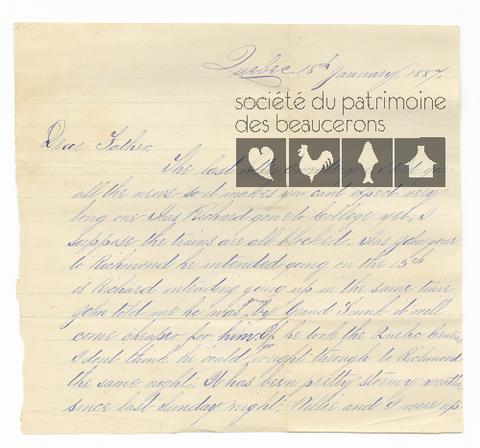 Quebec 18th January, 1887.
société du patrimoine
des beaucerons
Dear Father,
The last
all the news so it makes you cant expect very
long one Has Richard gone to College yet, I
suppose the trains are all blocked. Has John gone
to Richmond he intended going on the 15th
is Richard intending going up in the same time
John told me he was going by Grand Trunk it will
come cheaper for him. If he took the Quebec Central
I dont think he could go right through to Richmond
the same night. It has been pretty stormy weather
since last Sunday night. Willie and I were up